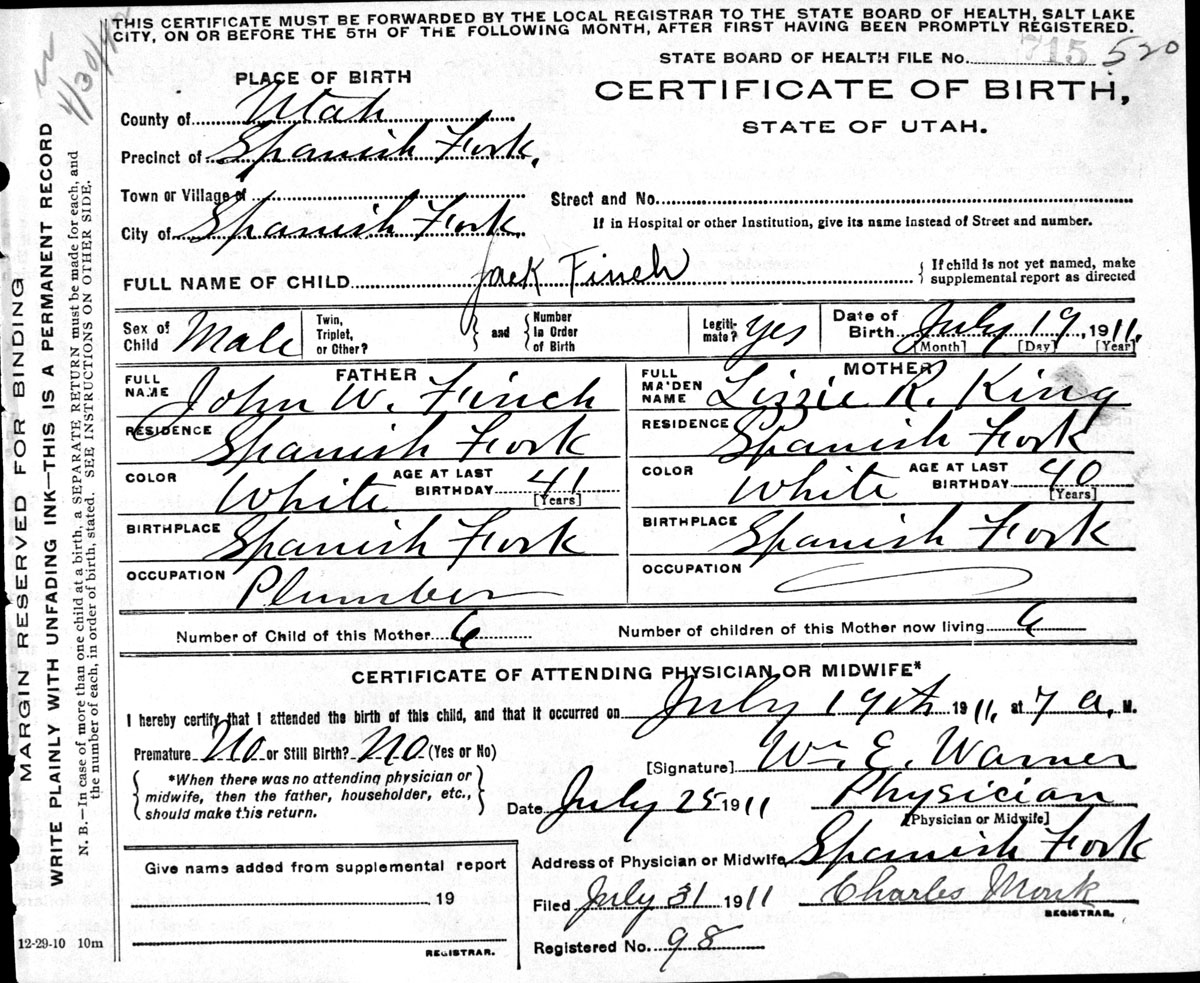 THIS CERTIFICATE MUST BE FORWARDED BY THE LOCAL REGISTRAR TO THE STATE BOARD OF HEALTH, SALT LAKE
CITY, ON OR BEFORE THE 5TH OF THE FOLLOWING MONTH, AFTER FIRST HAVING BEEN PROMPTLY REGISTERED.
4/30/42
STATE BOARD OF HEALTH FILE No. 715 520
PLACE OF BIRTH
CERTIFICATE OF BIRTH,
STATE OF UTAH.
County of Utah
Precinct of Spanish Fork,
Town or Village of
Street and No.
City of Spanish Fork.
If in Hospital or other Institution, give its name instead of Street and number.
FULL NAME OF CHILD Jack Finch
{ If child is not yet named, make
supplemental report as directed
Sex of Child Male
Twin, Triplet, or Other?
and
Number In Order of Birth
Legiti-mate? yes
Date of Birth July 19, 1911,
[Month] [Day] [Year]
FATHER
FULL NAME John W. Finch
RESIDENCE Spanish Fork
COLOR White
AGE AT LAST BIRTHDAY 41
[Years]
BIRTHPLACE Spanish Fork
OCCUPATION Plumber
MOTHER
FULL MAIDEN NAME Lizzie R. King
RESIDENCE Spanish Fork
COLOR White
AGE AT LAST BIRTHDAY 40
[Years]
BIRTHPLACE Spanish Fork
OCCUPATION
Number of Child of this Mother 6
Number of children of this Mother now living 6
CERTIFICATE OF ATTENDING PHYSICIAN OR MIDWIFE*
I hereby certify that I attended the birth of this child, and that it occurred on July 19th 1911, at 7 a. M.
Premature No or Still Birth? No (Yes or No)
[Signature] Wm E. Warner
{ *When there was no attending physician or
midwife, then the father, householder, etc.,
should make this return. }
Date July 25 1911
Physician
[Physician or Midwife]
Address of Physician or Midwife Spanish Fork
Filed July 31 1911 Charles Monk
REGISTRAR.
Registered No. 98
Give name added from supplemental report
19
REGISTRAR.
12-29-10 10m
MARGIN RESERVED FOR BINDING
WRITE PLAINLY WITH UNFADING INK—THIS IS A PERMANENT RECORD
N. B.—In case of more than one child at a birth, a SEPARATE RETURN must be made for each, and
the number of each, in order of birth, stated. SEE INSTRUCTIONS ON OTHER SIDE.